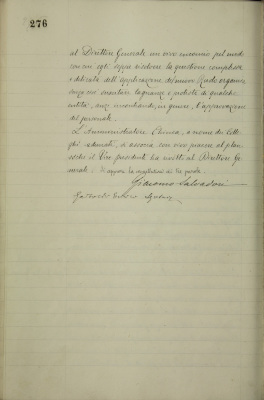 276
al Direttore Generale un vivo encomio pel modo
con cui egli seppe risolvere la questione complessa
e delicata dell'applicazione del nuovo Ruolo organico,
senza che sorgessero lagnanze o proteste di qualche
entità, anzi incontrando, in genere, l'approvazione
del personale.
L'Amministratore Chiesa, a nome dei Colle-
ghi adunati, si associa con vivo piacere al plau-
so che il Vice presidente ha rivolto al Direttore Ge-
nerale.
Giacomo Salvadori